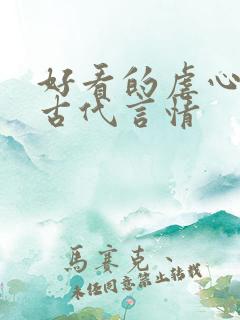 好看的虐心
古代言情
馬賽克、
未經同意禁止轉載